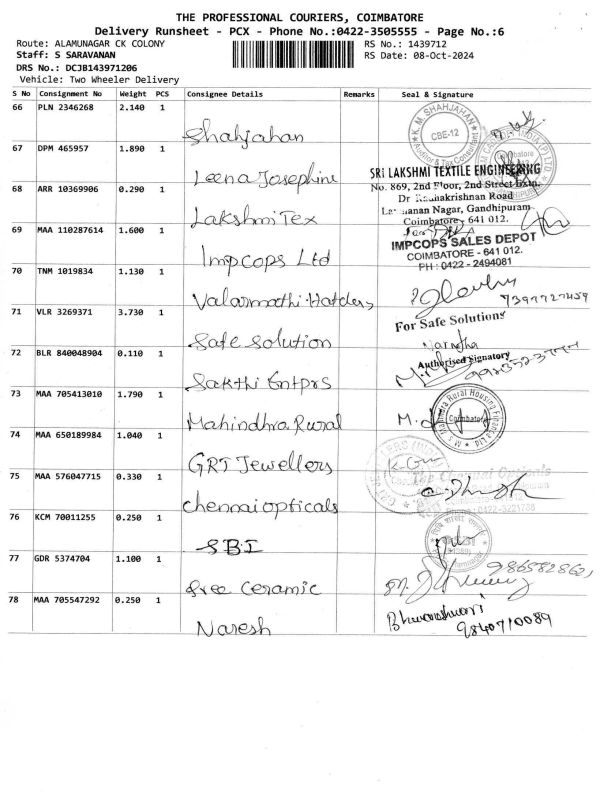 THE PROFESSIONAL COURIERS, COIMBATORE
Delivery Runsheet - PCX - Phone No.:0422-3505555 - Page No.:6
Route: ALAMUNAGAR CK COLONY
RS No.: 1439712
Staff: S SARAVANAN
RS Date: 08-Oct-2024
DRS No.: DCJB143971206
Vehicle: Two Wheeler Delivery
S No Consignment No Weight PCS Consignee Details Remarks Seal & Signature
66 PLN 2346268 2.140 1
Shahjahan
K. M. SHAHJAHAN
CBE-12
Auditor & Tax Consultant
67 DPM 465957 1.890 1
Leena Josephine
SRI LAKSHMI TEXTILE ENGINEERING
68 ARR 10369906 0.290 1
No. 869, 2nd Floor, 2nd Street Extn.
Dr Radhakrishnan Road
Nagar, Gandhipuram
Coimbatore - 641 012.
LakshmiTex
69 MAA 110287614 1.600 1
Impcops Ltd
IMPCOPS SALES DEPOT
COIMBATORE - 641 012.
PH : 0422 - 2494081
70 TNM 1019834 1.130 1
Valarmathi Hatders
7397727459
71 VLR 3269371 3.730 1
Safe Solution
For Safe Solutions
Authorised Signatory
72 BLR 840048904 0.110 1
Sakthi Entprs
73 MAA 705413010 1.790 1
Mahindhra Rural
Mahindra Rural Housing Finance Ltd
Coimbatore
74 MAA 650189984 1.040 1
GRT Jewellers
75 MAA 576047715 0.330 1
Chennai opticals
Phone : 0422-3221788
76 KCM 70011255 0.250 1
SBI
77 GDR 5374704 1.100 1
free ceramic
78 MAA 705547292 0.250 1
Naresh
Bhuvaneshwari
9840710089